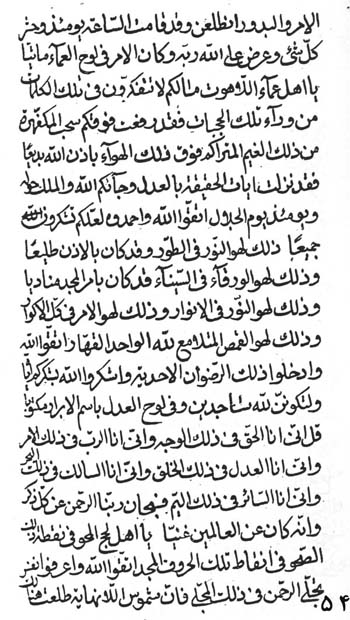 الامر والبدور انطلعن وقد قامت الساعة يومئذ وحشر
كل شئ وعرض على الله ربه وكان الامر فى لوح العمآء ماتيا
يا اهل عمآء اللاهوت مالكم لا تتفكرون فى تلك الكلمات
من ورآء تلك الحجبات فقد رفعت فوقكم سحب المكفهرة
من ذلك الغيم المتراكم فوق ذلك الهوآء باذن الله بديعا
فقد نزلت ايات الحقيقة بالعدل وجآئكم الله والملك
ويومئذ يوم الجلال اتقوا الله واحدوه لعلكم تشكرون الله
جميعا ذلك لهو النور فى الطور وقد كان بالاذن طليعا
وذلك لهو الورقآء فى السينآء قد كان بامر المجد مناديا
وذلك لهو النور فى الانوار وذلك لهو الامر فى كل الاكوار
وذلك لهو القمص المتلامع لله الواحد القهار اتقوا الله
وادخلوا ذلك الرضوان الاحدية واشكروا الله
ولتكونن لله ساجدين وفى لوح العدل باسم الابرار مكتوبا
قل انى انا الحق فى ذلك الوجه وانى انا الرب فى ذلك الامر
وانى انا العدل فى ذلك الخلق وانى انا السالك فى ذلك البحر
وانى انا السائر فى ذلك اليم فسبحان ربنا الرحمن عن كل ذكر
وانه كان عن العالمين غنيا يا اهل لجج المحو فى نقطة
الصحو فى انقاط تلك الحروف المجد اتقوا الله واعرفوا
تجلى الرحمن فى ذلك المجلى فان شموس اللانهاية طلعت
٥٤